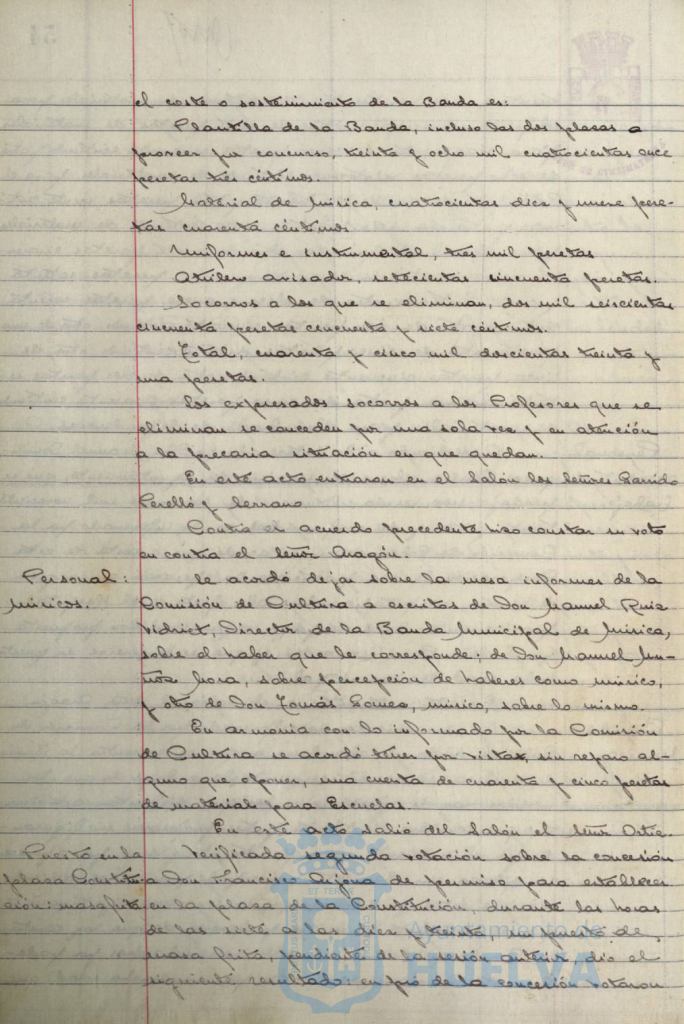 el coste o sostenimiento de la Banda es:
Plantilla de la Banda, incluso las dos plazas a
proveer por concurso, treinta y ocho mil cuatrocientas once
pesetas tres céntimos.
Material de música, cuatrocientas diez y nueve pese-
tas cuarenta céntimos
Uniformes e instrumental, tres mil pesetas
Atrilero avisador, setecientas cincuenta pesetas.
Socorros a los que se eliminan, dos mil seiscientas
cincuenta pesetas cincuenta y siete céntimos.
Total, cuarenta y cinco mil doscientas treinta y
una pesetas.
Los expresados socorros a los Profesores que se
eliminan se conceden por una sola vez y en atención
a la precaria situación en que quedan.
En este acto entraron en el Salón los Señores Garrido
Perelló y Serrano
Contra el acuerdo precedente hizo constar su voto
en contra el Señor Aragón.
Personal:
músicos.
Se acordó dejar sobre la mesa informes de la
Comisión de Cultura a escritos de Don Manuel Ruiz
Vidriet, Director de la Banda Municipal de Música,
sobre el haber que le corresponde; de Don Manuel Mu-
ñoz Mora, sobre percepción de haberes como músico,
y otro de Don Tomás Gomez, músico, sobre lo mismo.
En armonia con lo informado por la Comisión
de Cultura se acordó tener por vista, sin reparo al-
guno que oponer, una cuenta de cuarenta y cinco pesetas
de material para Escuelas.
En este acto salió del Salón el Señor Ortiz.
Puesto en la
plaza Constitu-
ción: masa frita
Verificada segunda votación sobre la concesión
a Don Francisco Arjona de permiso para establecer
en la plaza de la Constitución, durante las horas
de las siete a las diez y treinta, un puesto de
masa frita, pendiente de la sesión anterior, dio el
siguiente resultado: en pró de la concesión votaron
Ayuntamiento de
HUELVA